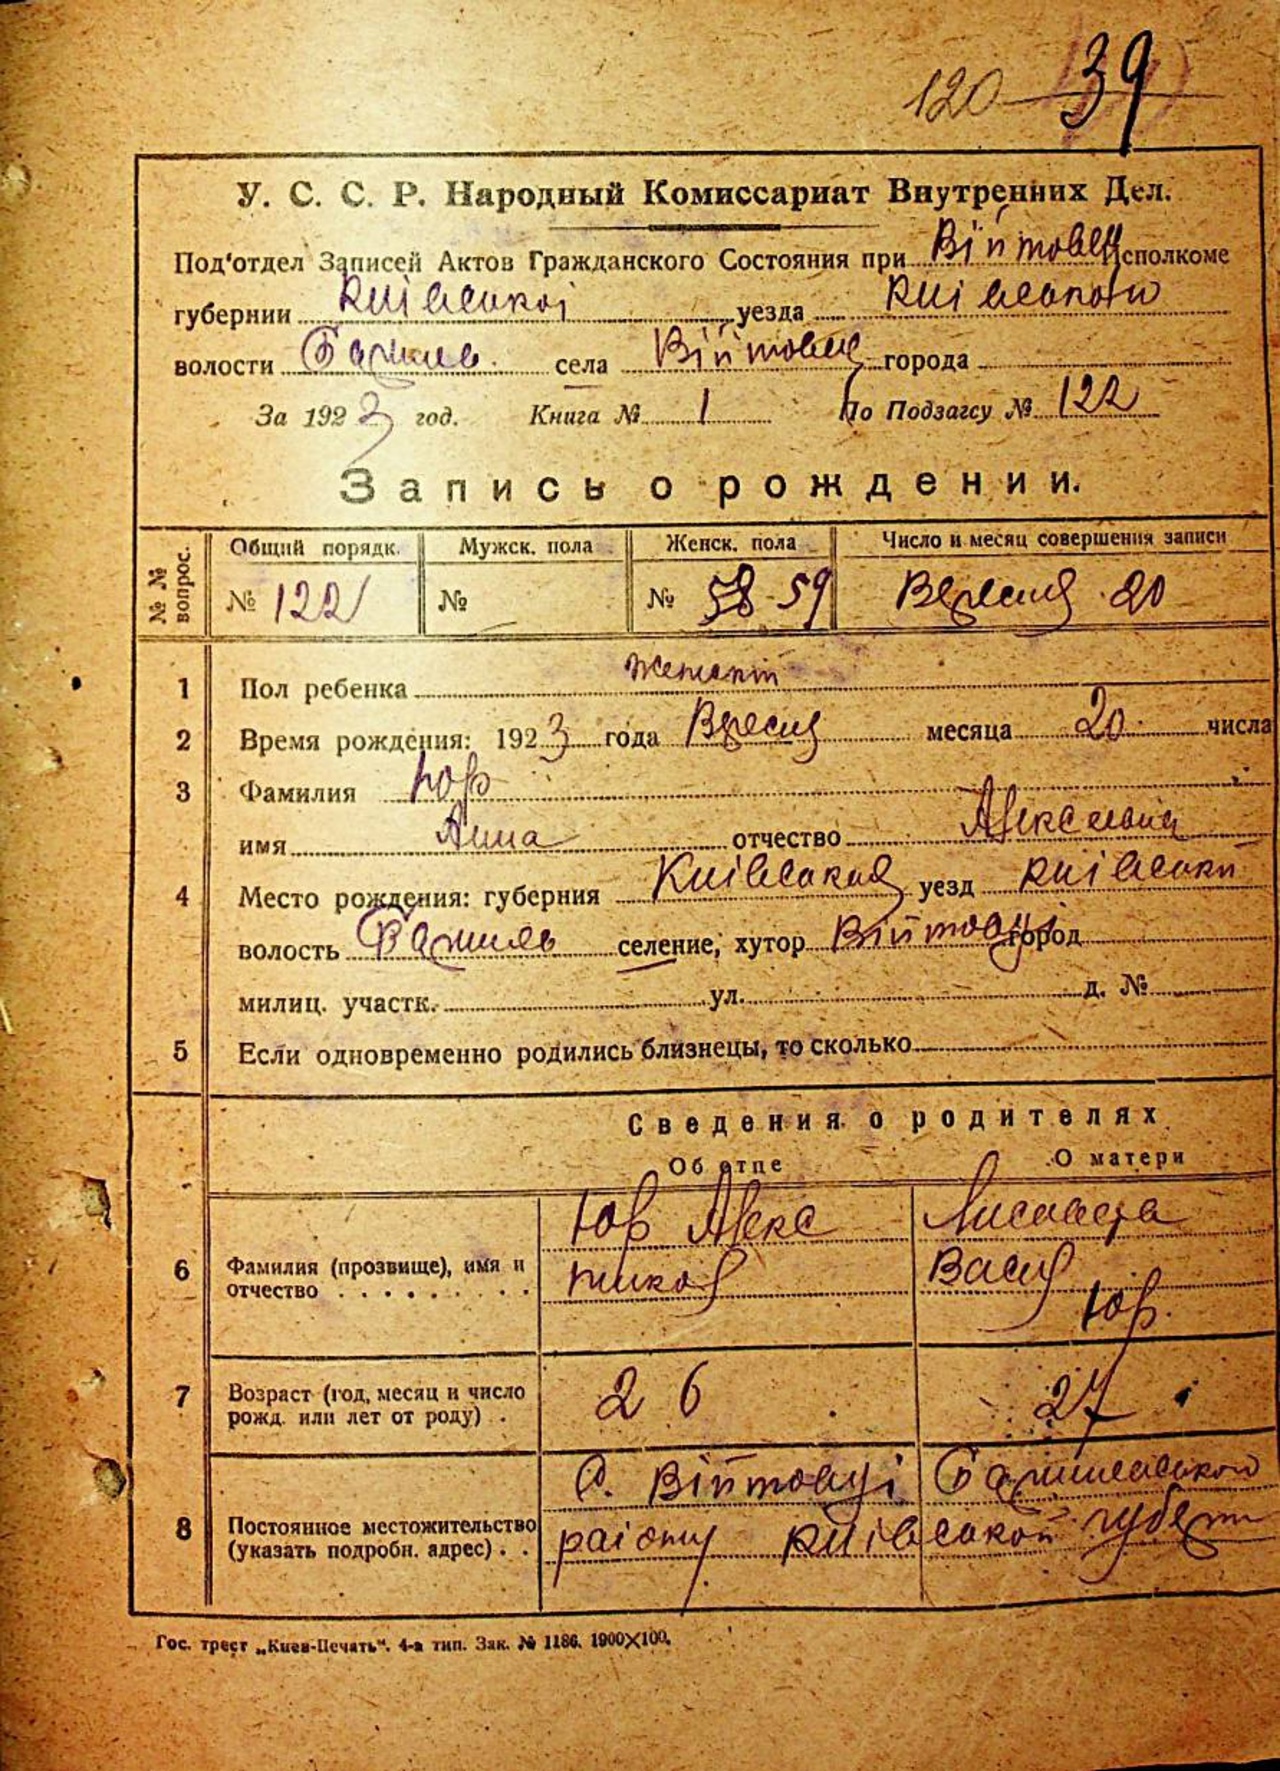 120 39
У. С. С. Р. Народный Комиссариат Внутренних Дел.
Под'отдел Записей Актов Гражданского Состояния при Війтовец Исполкоме
губернии Київської уезда Київського
волости села Війтовец города
За 1923 год. Книга № 1 По Подзагсу № 122
Запись о рождении.
№ № вопрос. Общий порядк. Мужск. пола Женск. пола Число и месяц совершения записи
№ 122 № № 58 59 Вересня 20
1 Пол ребенка женский
2 Время рождения: 1923 года Вересня месяца 20 числа
3 Фамилия Юр
имя Анна отчество
4 Место рождения: губерния Київська уезд Київськи
волость селение, хутор Війтовці город
милиц. участк. ул. д. №
5 Если одновременно родились близнецы, то сколько
Сведения о родителях
Об отце О матери
Юр Алекс
6 Фамилия (прозвище), имя и отчество Васил
Юр.
7 Возраст (год, месяц и число рожд. или лет от роду) . 26 27
с. Війтовці
8 Постоянное местожительство (указать подробн. адрес) . . району Київської губерни
Гос. трест „Киев-Печать“. 4-я тип. Зак. № 1186. 1900×100.